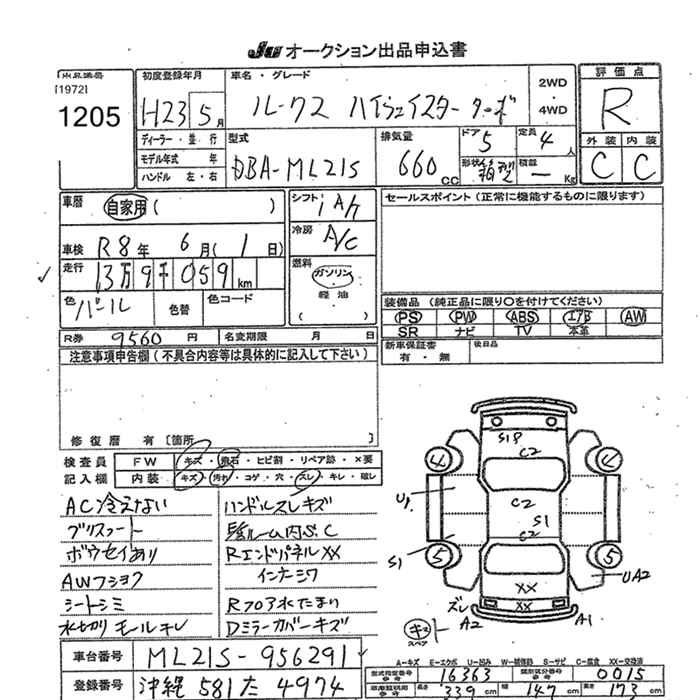 JU オークション出品申込書
出品番号
[1972]
1205
初度登録年月
H23 5月
車名・グレード
ルークス ハイウェイスター ターボ
2WD
・
4WD
評価点
R
外装 内装
C C
ディーラー・並行
モデル年式 年
ハンドル 左・右
型式
DBA-ML21S
排気量
660 cc
ドア 5
形状
定員 4人
積載 — Kg
車歴
自家用 ( )
車検 R8年 6月 ( 1日)
走行
13万9千059 km
色 パール
色替
色コード
シフト
I A/T
冷房
A/C
燃料
ガソリン
軽油
( )
セールスポイント (正常に機能するものに限ります)
装備品 (純正品に限り○を付けてください)
PS PW ABS エアB AW
SR ナビ TV 本革
新車保証書
有・無
後日品
R券 9560 円
名変期限 月 日
注意事項申告欄 (不具合内容等は具体的に記入して下さい)
修復歴 有 [箇所 ]
検査員
記入欄
FW キズ・飛石・ヒビ割・リペア跡・×要
内装 キズ・汚れ・コゲ・穴・スレ・キレ・破レ
AC冷えない
ボウセイあり
AWフショク
シートシミ
水切りモールキレ
ハンドルスレキズ
RエンドパネルXX
インナーシワ
Rフロア水たまり
Dミラーカバーキズ
S1P
C2
4
4
C2
S1
C2
U1
S1
5
5
XX
XX
UA2
ズレ
キズ
スペア
A2
A1
A-キズ E-エクボ U-凹み W-補修跡 S-サビ C-腐食 XX-交換済
車台番号 ML21S-956291
登録番号 沖縄 581 た 4974
型式指定番号
参考
16363
類別区分番号
参考
0015
長さ 339 cm
幅 147 cm
高さ 173 cm